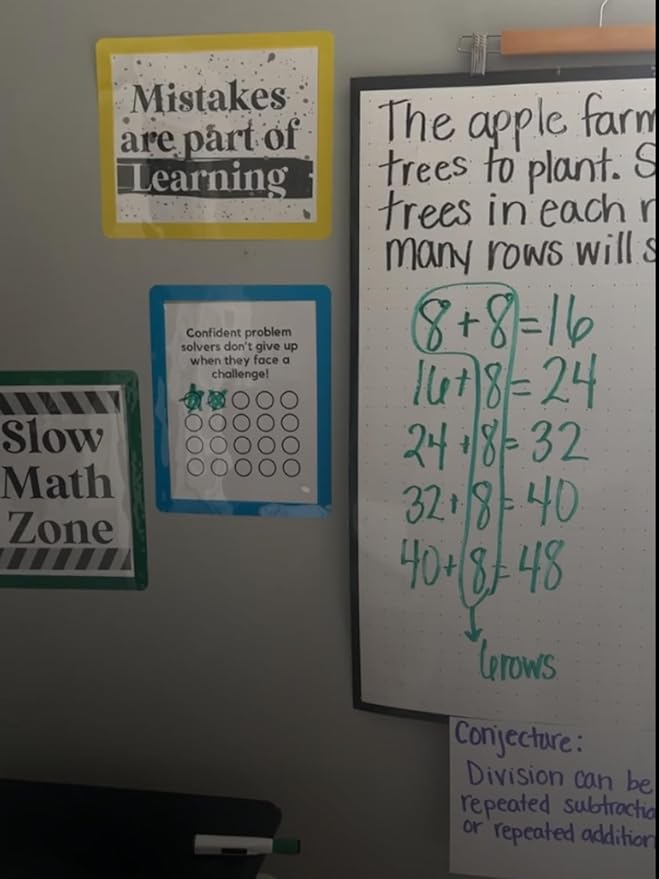 Mistakes
are part of
Learning
Confident problem
solvers don't give up
when they face a
challenge!
Slow
Math
Zone
The apple farm
trees to plant. S
trees in each r
many rows will s
8+8=16
16+8=24
24+8=32
32+8=40
40+8=48
6rows
Conjecture:
Division can be
repeated subtractio
or repeated addition